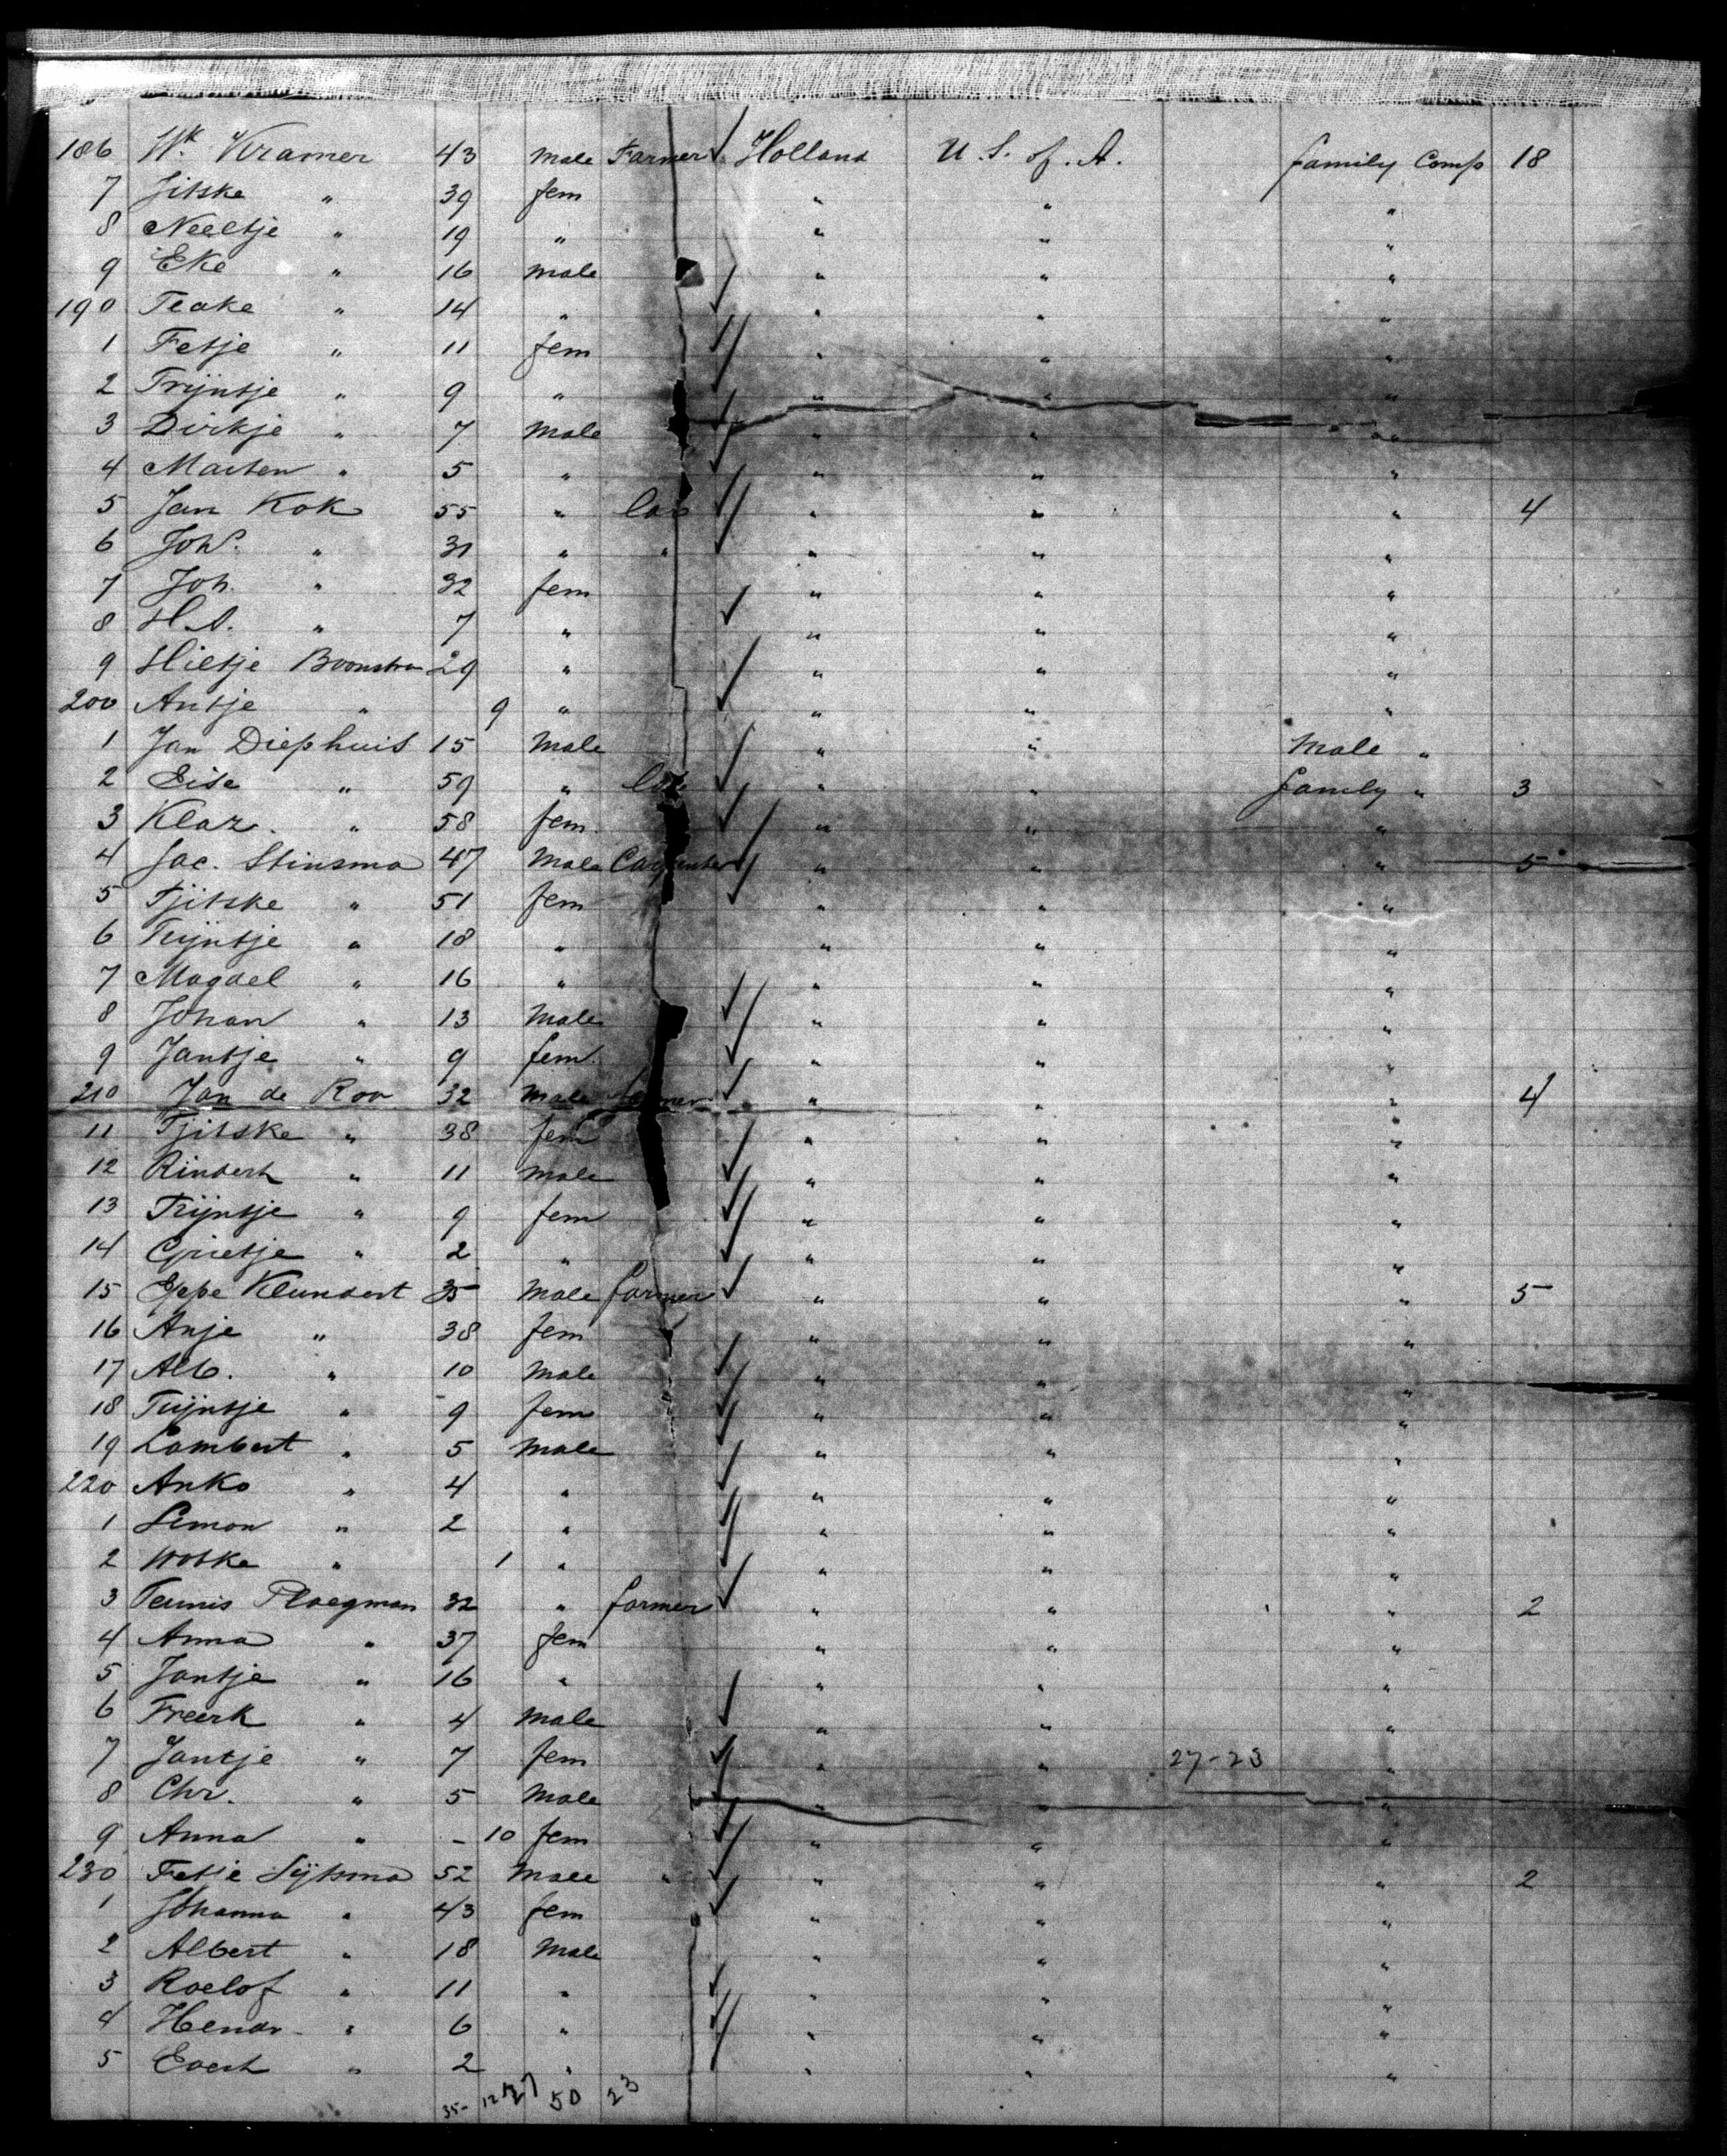 186 Wk. Kramer 43 male Farmer Holland U. S. of. A. family Comp 18
7 Jitske " 39 fem " " "
8 Neeltje " 19 " " " "
9 Eke " 16 male " " "
190 Teake " 14 " " " "
1 Fetje " 11 fem " " "
2 Trijntje " 9 " " " "
3 Dirkje " 7 male " " "
4 Marten " 5 " " " "
5 Jan Kok 55 " lab " " " 4
6 Johs. " 31 " " " " "
7 Joh. " 32 fem " " "
8 H.A. " 7 " " " "
9 Hieltje Boonstra 29 " " " "
200 Antje " 9 " " " "
1 Jan Diephuis 15 male " " male "
2 Eise " 59 " " " family " 3
3 Klaz. " 58 fem. " " "
4 Jac. Stinsma 47 male Carpenter " " " 5
5 Tjitske " 51 fem " " "
6 Trijntje " 18 " " " "
7 Magdel " 16 " " " "
8 Johan " 13 male " " "
9 Jantje " 9 fem. " " "
210 Jan de Roo 32 male farmer " " " 4
11 Tjitske " 38 fem " " "
12 Rindert " 11 male " " "
13 Trijntje " 9 fem " " "
14 Grietje " 2 " " " "
15 Eppe Klundert 35 male farmer " " " 5
16 Anje " 38 fem " " "
17 Alb. " 10 male " " "
18 Trijntje " 9 fem " " "
19 Lambert " 5 male " " "
220 Anko " 4 " " " "
1 Simon " 2 " " " "
2 " 1 " " " "
3 Teunis Ploegman 32 " farmer " " " 2
4 Anna " 37 fem " " "
5 Jantje " 16 " " " "
6 Freerk " 4 male " " "
7 Jantje " 7 fem " " 27-23 "
8 Chr. " 5 male " " "
9 Anna " - 10 fem " " "
230 Fetje Sijtsma 52 male " " " " 2
1 Johanna " 43 fem " " "
2 Albert " 18 male " " "
3 Roelof " 11 " " " "
4 Hendr. " 6 " " " "
5 Evert " 2 " " " "
35- 12 27 50 23